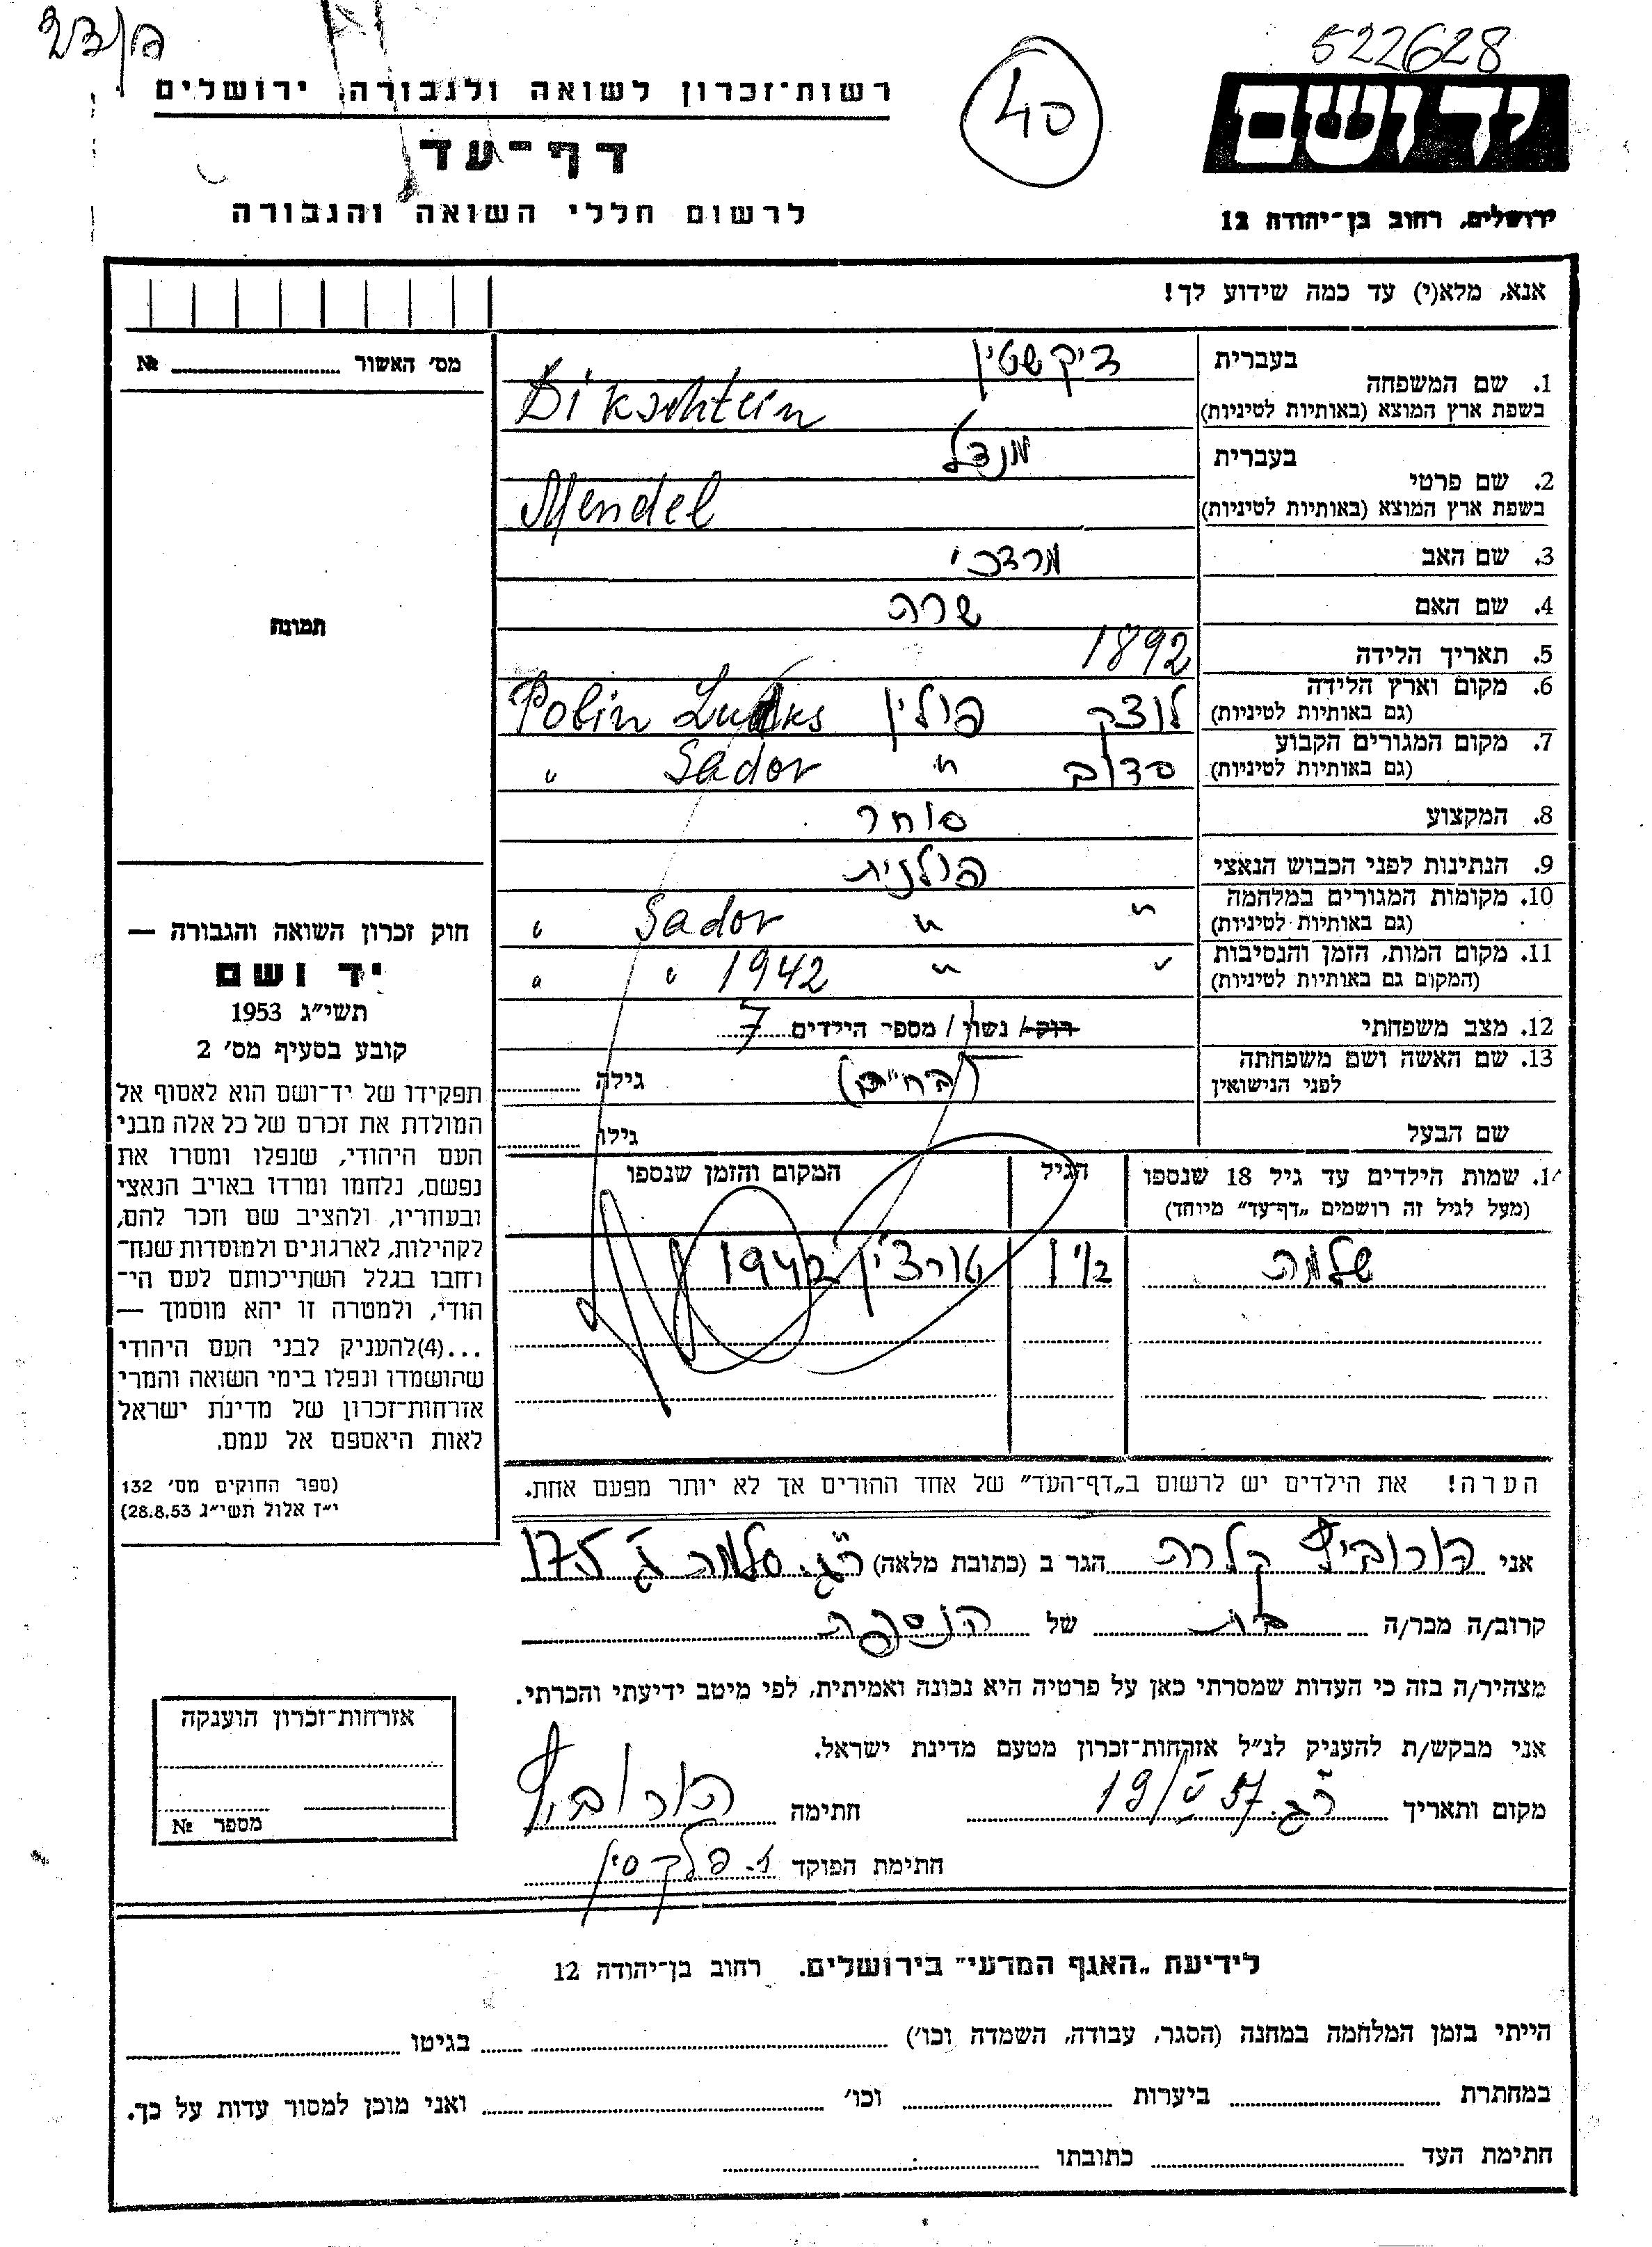 522628
יד ושם
ירושלים, רחוב בן־יהודה 12
40
רשות־זכרון לשואה ולגבורה, ירושלים
דף־עד
לרשום חללי השואה והגבורה
אנא, מלא(י) עד כמה שידוע לך!
מס׳ האשור № ..........
תמונה
בעברית דיקשטיין
1. שם המשפחה
בשפת ארץ המוצא (באותיות לטיניות) Dikschtein
בעברית מנדל
2. שם פרטי
בשפת ארץ המוצא (באותיות לטיניות) Mendel
3. שם האב מרדכי
4. שם האם שרה
5. תאריך הלידה 1892
6. מקום וארץ הלידה לוצק פולין Polin
(גם באותיות לטיניות)
7. מקום המגורים הקבוע סדוב " Sador "
(גם באותיות לטיניות)
8. המקצוע סוחר
9. הנתינות לפני הכבוש הנאצי פולנית
10. מקומות המגורים במלחמה " " Sador "
(גם באותיות לטיניות)
11. מקום המות, הזמן והנסיבות " " 1942 " "
(המקום גם באותיות לטיניות)
12. מצב משפחתי רוק / נשוי / מספר הילדים 7
13. שם האשה ושם משפחתה (בחיים) גילה
לפני הנישואין
שם הבעל גילו
14. שמות הילדים עד גיל 18 שנספו הגיל המקום והזמן שנספו
(מעל לגיל זה רושמים „דף־עד” מיוחד)
שלמה 1942
הערה! את הילדים יש לרשום ב„דף־העד” של אחד ההורים אך לא יותר מפעם אחת.
חוק זכרון השואה והגבורה —
יד ושם
תשי״ג 1953
קובע בסעיף מס׳ 2
תפקידו של יד־ושם הוא לאסוף אל
המולדת את זכרם של כל אלה מבני
העם היהודי, שנפלו ומסרו את
נפשם, נלחמו ומרדו באויב הנאצי
ובעוזריו, ולהציב שם וזכר להם,
לקהילות, לארגונים ולמוסדות שנח־
רחבו בגלל השתייכותם לעם הי־
הודי, ולמטרה זו יהא מוסמך —
...(4)להעניק לבני העם היהודי
שהושמדו ונפלו בימי השואה והמרי
אזרחות־זכרון של מדינת ישראל
לאות היאספם אל עמם.
(ספר החוקים מס׳ 132
י״ז אלול תשי״ג 28.8.53)
אני הורוביץ קלרה הגר ב (כתובת מלאה) ר״ג. סלמה ג 175
קרוב/ה מכר/ה בת של הנספה
מצהיר/ה בזה כי העדות שמסרתי כאן על פרטיה היא נכונה ואמיתית, לפי מיטב ידיעתי והכרתי.
אני מבקש/ת להעניק לנ״ל אזרחות־זכרון מטעם מדינת ישראל.
מקום ותאריך ר״ג. 19/V 57 חתימה הורוביץ
חתימת הפוקד
אזרחות־זכרון הוענקה
מספר №
לידיעת „האגף המדעי” בירושלים, רחוב בן־יהודה 12
הייתי בזמן המלחמה במחנה (הסגר, עבודה, השמדה וכו׳) בגיטו
במחתרת ביערות וכו׳ ואני מוכן למסור עדות על כך.
חתימת העד כתובתו